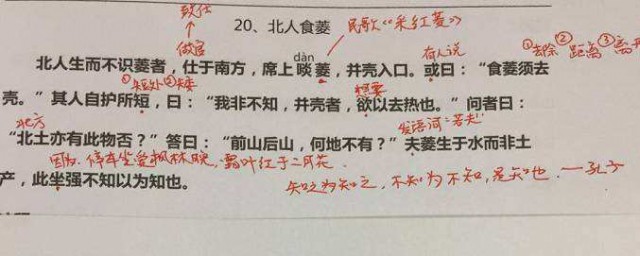 致仕
20、北人食菱
民歌《采红菱》
做官
dàn
有人说
①去除 ②距离 ③离开
北人生而不识菱者，仕于南方，席上啖菱，并壳入口。或曰：“食菱须去
①短处 ②缺
想要
壳。”其人自护所短，曰：“我非不知，并壳者，欲以去热也。”问者曰：
北方
发语词 "若夫"
“北土亦有此物否？”答曰：“前山后山，何地不有？”夫菱生于水而非土
因为 停车坐爱枫林晚，霜叶红于二月花．
产，此坐强不知以为知也。
知之为知之，不知为不知，是知也．—孔子